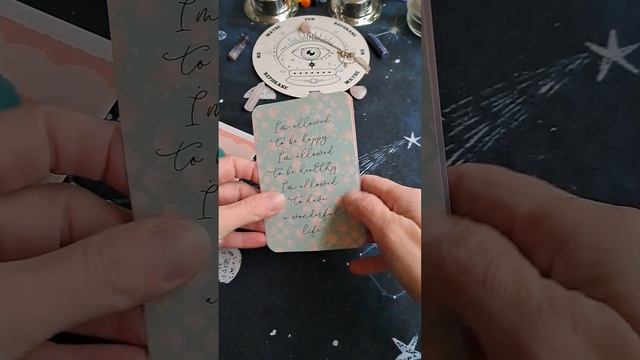 YES
MAYBE
REPHRASE
NO
MAYBE
REPHRASE
NO
I'm allowed
to be happy.
I'm allowed
to be healthy.
I'm allowed
to have
a wonderful
life.
I'm
to
I'm
to
I